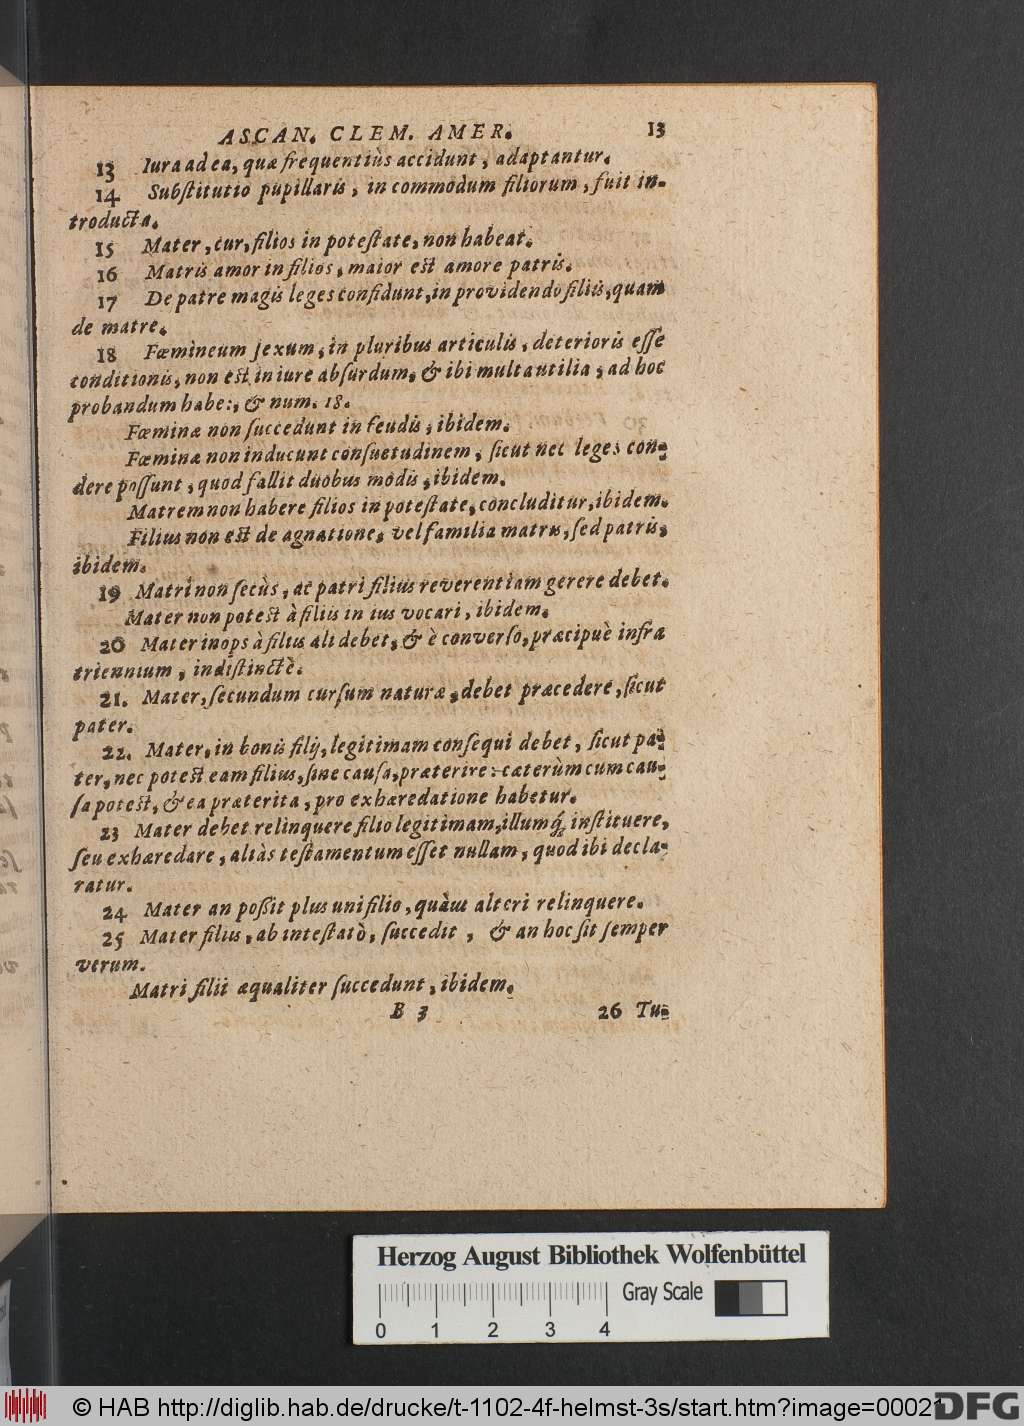 ASCAN. CLEM. AMER. 13
13 Iura ad ea, quæ frequentiùs accidunt, adaptantur.
14 Subſtitutio pupillaris, in commodum filiorum, fuit in-
troducta.
15 Mater, cur, filios in poteſtate, non habeat.
16 Matris amor in filios, maior est amore patris.
17 De patre magis leges confidunt, in providendo filiis, quam
de matre.
18 Fœmineum ſexum, in pluribus articulis, deterioris eſſe
conditionis, non est in iure abſurdum, & ibi multa utilia, ad hoc
probandum habe:, & num. 18.
Fœminæ non ſuccedunt in feudis, ibidem.
Fœminæ non inducunt conſuetudinem, ſicut nec leges con-
dere poſſunt, quod fallit duobus modis, ibidem.
Matrem non habere filios in poteſtate, concluditur, ibidem.
Filius non est de agnatione, vel familia matris, ſed patris,
ibidem.
19 Matri non ſecùs, ac patri filius reverentiam gerere debet.
Mater non potest à filiis in ius vocari, ibidem.
20 Mater inops à filius ali debet, & è converſo, præcipuè infra
triennium, indiſtinctè.
21. Mater, ſecundum curſum naturæ, debet præcedere, ſicut
pater.
22. Mater, in bonis filij, legitimam conſequi debet, ſicut pa-
ter, nec potest eam filius, ſine cauſa, præterire: cæterùm cum cau-
ſa potest, & ea præterita, pro exhæredatione habetur.
23 Mater debet relinquere filio legitimam, illumq́; inſtituere,
ſeu exhæredare, aliàs teſtamentum eſſet nullam, quod ibi decla-
ratur.
24 Mater an poßit plus uni filio, quàm alteri relinquere.
25 Mater filius, ab inteſtatò, ſuccedit, & an hoc ſit ſemper
verum.
Matri filii æqualiter ſuccedunt, ibidem.
B 3 26 Tu-
Herzog August Bibliothek Wolfenbüttel
Gray Scale
0 1 2 3 4
© HAB http://diglib.hab.de/drucke/t-1102-4f-helmst-3s/start.htm?image=00021
DFG